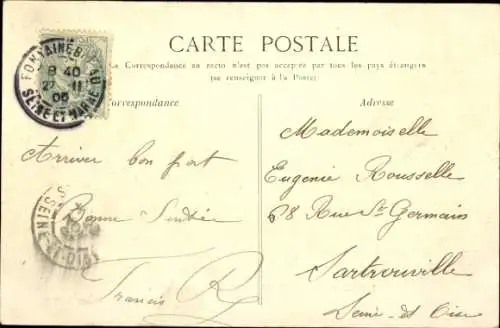 CARTE POSTALE
La Correspondance au recto n'est pas acceptée par tous les pays étrangers
(se renseigner à la Poste)
FONTAINEBLEAU
8 40
27 11
06
SEINE ET MARNE
Correspondance
Adresse
Arriver bon port
Bonne
Francis R
SEINE-ET-OISE
Mademoiselle
Eugenie Rousselle
68 Rue St Germain
Sartrouville
Seine-et-Oise